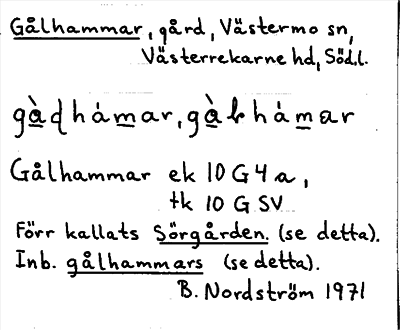 Gålhammar, gård, Västermo sn,
Västerrekarne hd, Södl.
gàɖhámar, gàƚhámar
Gålhammar ek 10 G 4 a,
tk 10 G SV
Förr kallats Sörgården. (se detta).
Inb. gålhammars (se detta).
B. Nordström 1971